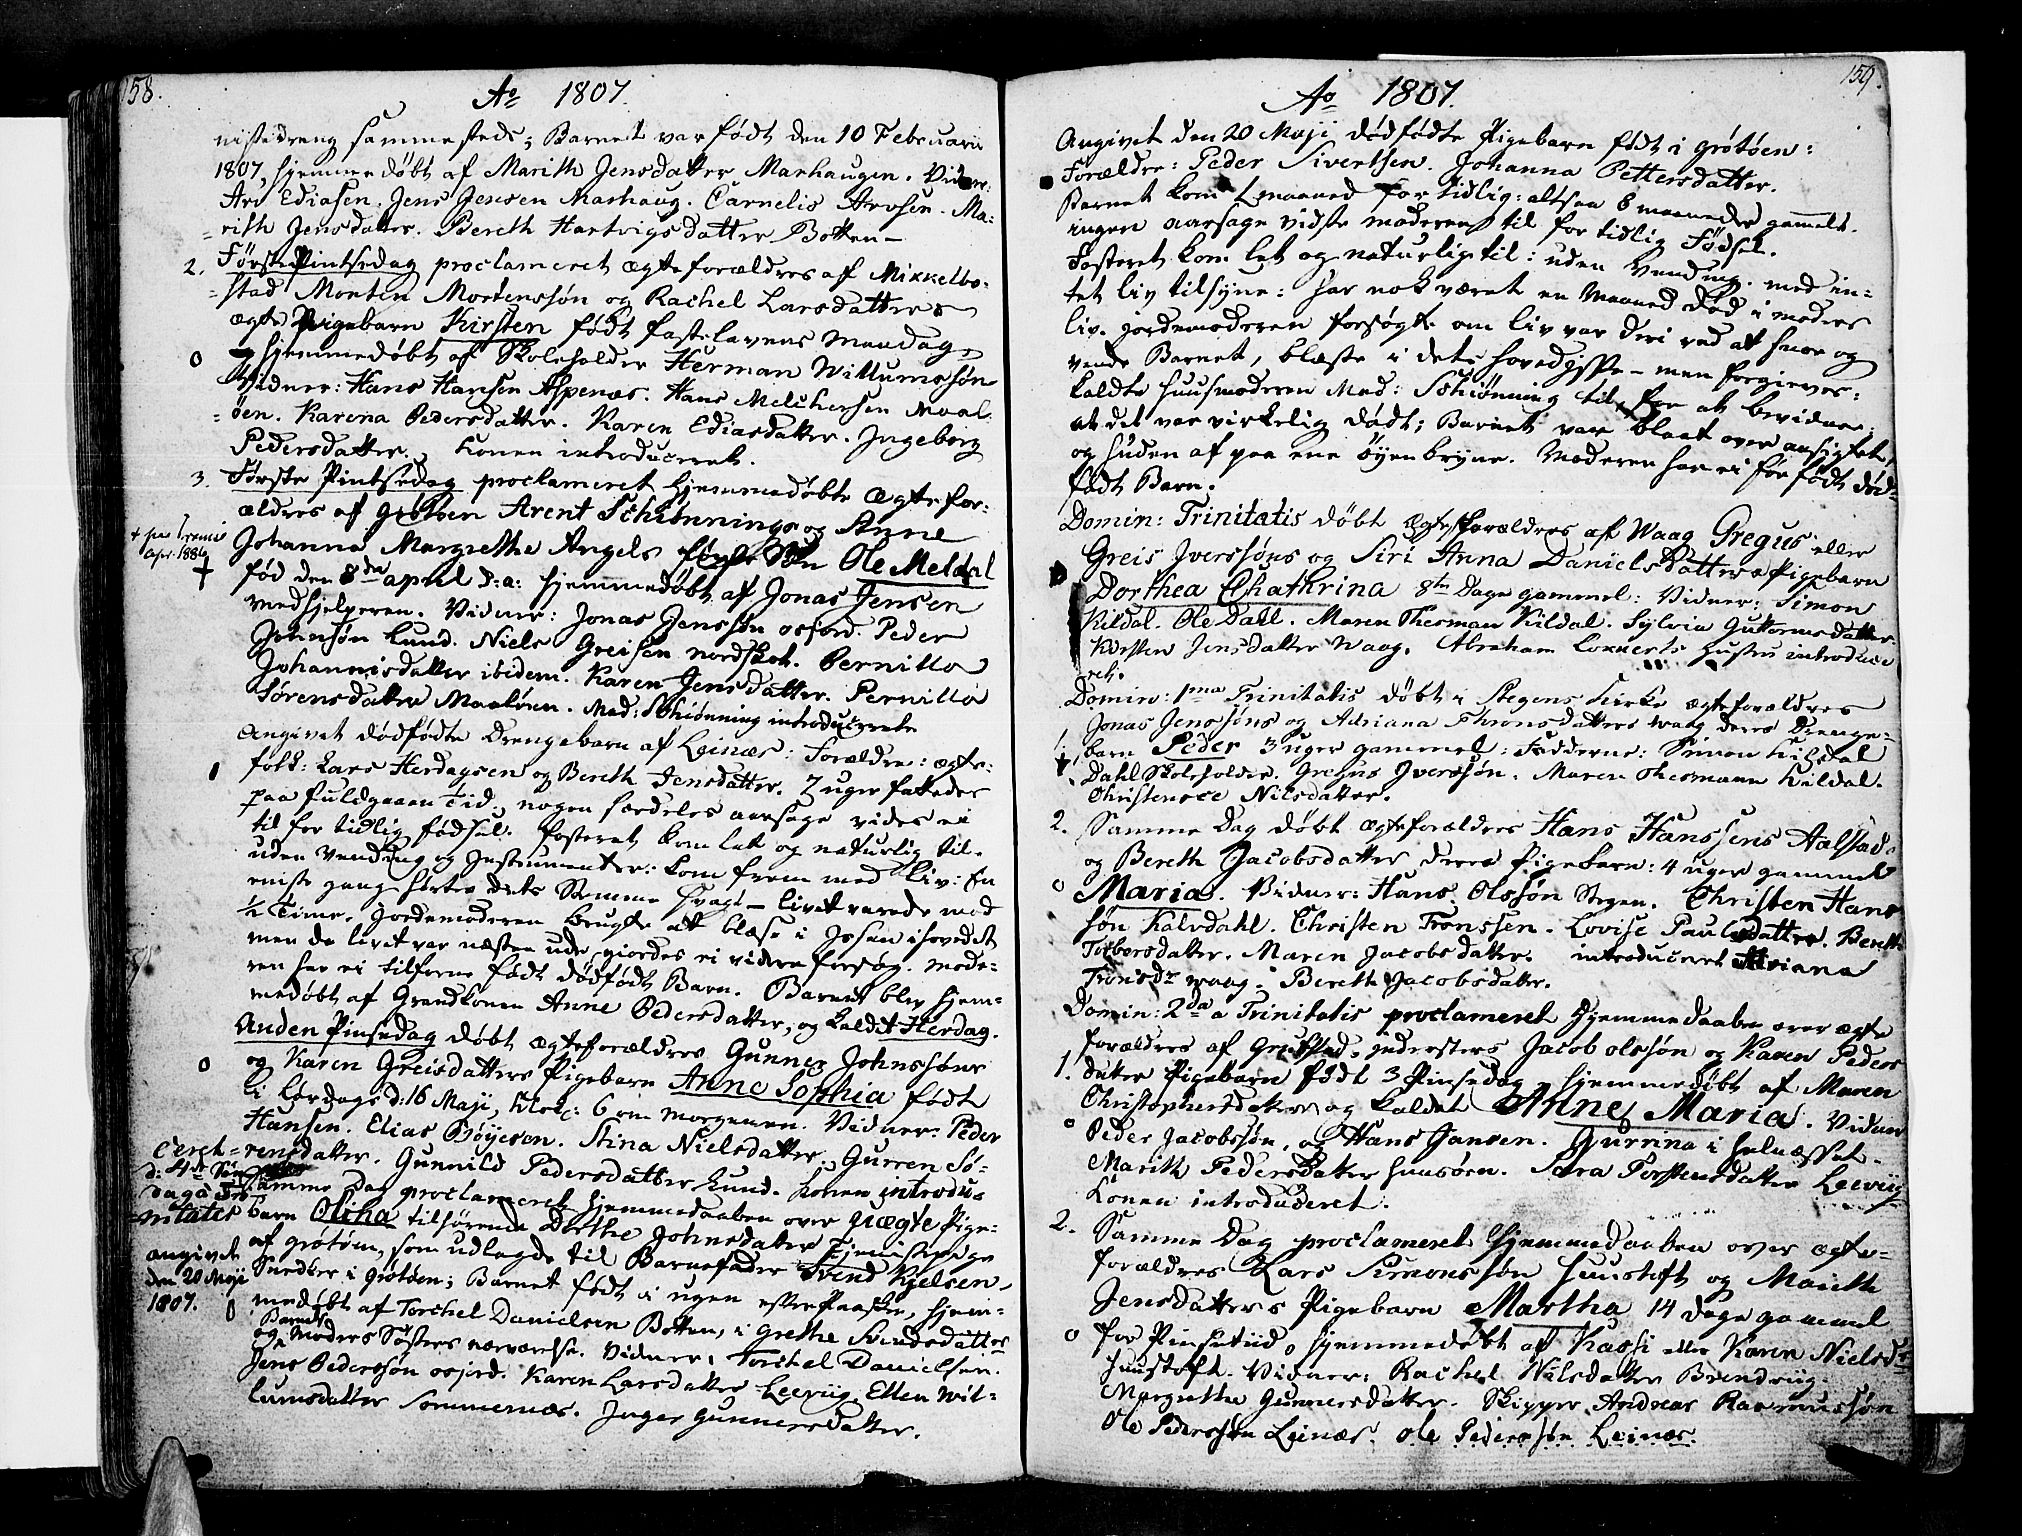 158.
Ao 1807.
nistedreng sammesteds; Barnet var født den 10 Februarii
1807, hjemmedøbt af Marith Jensdatter Marhaugen. Vidner:
Are Ediasen. Jens Jensen Marhaug. Carnelis Arvesen. Ma-
rith Jensdatter. Bereth Hartvigsdatter Botten -
2. Første Pintsedag proclameret ægteforældres af Mikkelbo-
stad Morten Mortenssøn og Rachel Larsdatters
ægte Pigebarn Kirsten født fastelavens Mandag,
o hjemmedøbt af Skoleholder Herman Willumssøn
Vidner: Hans Hansen Aspenæs. Hans Melchersen Maal-
øen. Karena Pedersdatter. Karen Ediasdatter. Ingeborg
Pedersdatter. Konen introduceret.
3. Første Pintsedag proclameret hjemmedøbte Ægtefor-
ældres af Grøtøen Arent Schiønnings og Anne
Johanna Margrethe Angels Søn Ole Meldal
fød den 8de april d: a: hjemmedøbt af Jonas Jensen
medhjelperen. Vidner: Jonas Jenssøn osjord. Peder
Johnsøn Lund. Niels Greisen nordskot. Pernilla
Johannisdatter ibidem. Karen Jensdatter. Pernilla
Sørensdatter Maaløen. Mad: Schiønning introduceret
Angivet dødfødte Drengebarn af Leinæs: Forældre: ægte-
folk: Lars Herdagsen og Bereth Jensdatter. 7 uger fattedes
paa fuldgaaen Tid, nogen særdeles aarsage vides ei
til for tidlig fødsel. fosteret kom let og naturlig til.
uden Vending og Instrumenter: kom frem med liv: En
eniste gang hørtes dets Stemme svagt - livet varede med
1/2 Time. Jordemoderen brugte at blæse i Issen i hovedet
men da livet var næsten ude, giordes ei videre forsøg. Mode-
ren har ei tilforne født dødfødt Barn. Barnet blev hjem-
medøbt af Grandkonen Anne Pedersdatter, og kaldet Herdag.
Anden Pinsedag døbt ægteforældres Gunner Johnssøns
o og Karen Greisdatters Pigebarn Anne Sophia født
li Lørdags d: 16 Maji, klok: 6 om Morgenen. Vidner: Peder
Hansen. Elias Bøyesen. Stina Nielsdatter. Gurren Sø-
rensdatter. Gunnild Pedersdatter Lund. Konen introdu-
ceret
d: 4de Søn
dag a Tri
nitatis
Samme Dag proclameret hjemmedaaben over uægte Pige-
barn Olina tilhørende Dorthe Johnsdatter Tienistepige
af grøtøen, som udlagde til Barnefader Svend Kjelsen
Snedker i Grøtøen; Barnet født i ugen efter Paaske, hjem-
angivet
den 20 Maji
1807.
medøbt af Torchel Danielsen Botten, i Grethe Svendsdatter
Barnets
og Moders Søsters nærværelse. Vidner: Torchel Danielsen.
Jens Pederssøn osjord. Karen Larsdatter Leevüg. Ellen Wil-
lumsdatter Sommernæs. Inger Gunnersdatter.
159.
Ao 1807.
Angivet den 20 Maji dødfødte Pigebarn født i grøtøen:
Forældre: Peder Sivertsen. Johanna Pettersdatter.
Barnet kom 1 maaned for tidlig: altsaa 8 maaneder gammelt.
ingen aarsage vidste moderen til for tidlig Fødsel.
Fosteret kom let og naturlig til: uden Vending. med in-
tet liv tilsyne: har nok været en Maaned død i moders
liv. jordemoderen forsøgte om liv var deri ved at snoe og
vende Barnet, blæste i dets hoved ysse - men forgieves:
kaldte huusmoderen Mad: Schiønning til, for at bevidne:
at det var virkelig dødt; Barnet var blaat over ansigtet,
og huden af paa ene øyenbryne. Moderen har ei før født død-
født Barn.
Domin: Trinitatis døbt Ægteforældres af Waag Gregus eller
Greis Iverssøns og Siri Anna Danielsdatters Pigebarn
Dorthea Chathrina 8te Dage gammel: Vidner: Simon
Kildal. Ole Dall. Maren Therman Kildal. Sylvia Guttormsdatter.
Kirsten Jensdatter Waag. Abraham Lokkerts Hustru introduce
ret.
Domin: 1ma Trinitatis døbt i Stegens Kirke ægteforældres
1. Jonas Jenssøns og Adriana Thronsdatters Waag deres Drenge-
barn Peder 3 uger gammel: Fadderne: Simon Kildal
Dahl Skoleholder. Gregus Iverssøn. Maren Thermann Kildal.
Christense Nilsdatter.
2. Samme Dag døbt ægteforældres Hans Hanssens Aalstad
og Bereth Jacobsdatter deres Pigebarn: 4 uger gammel
o Maria. Vidner: Hans Olssøn Stegen. Christen Hans
søn Kalvdahl. Christen Tronssen. Lovise Paulsdatter. Bereth
Torborsdatter. Maren Jacobsdatter. introduceret Adriana
Tronsdr waag. Bereth Jacobsdatter.
Domin: 2da a Trinitatis proclameret Hjemmedaaben over ægte
forældres af Jacob olssøn og Karen Peders
1. datter Pigebarn født 3 Pinsedag hjemmedøbt af Maren
Christophersdatter og kaldet Anne Maria. Vidner
o Peder Jacobssøn, og Hans Jansen. Gurrina i helnesset.
Marith Pedersdatter huusøen. Sara Torstensdatter Leevüg
Konen introduceret.
2. Samme Dag proclameret Hjemmedaaben over ægte-
forældres Lars Simonssøn huustoft og Marith
Jensdatters Pigebarn Martha 14 dage gammel
o for Pinsetiid, hjemmedøbt af Kassi eller Karen Nielsdr
huustoft. Vidner: Rachel Nilsdatter Brendvüg.
Margrethe Gunnersdatter. Skipper Andreas Rasmussøn
Ole Pederssøn Leinæs. Ole Pederssøn Leinæs.